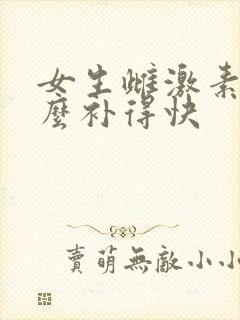 女生雌激素
麼补得快
賣萌無敵小小